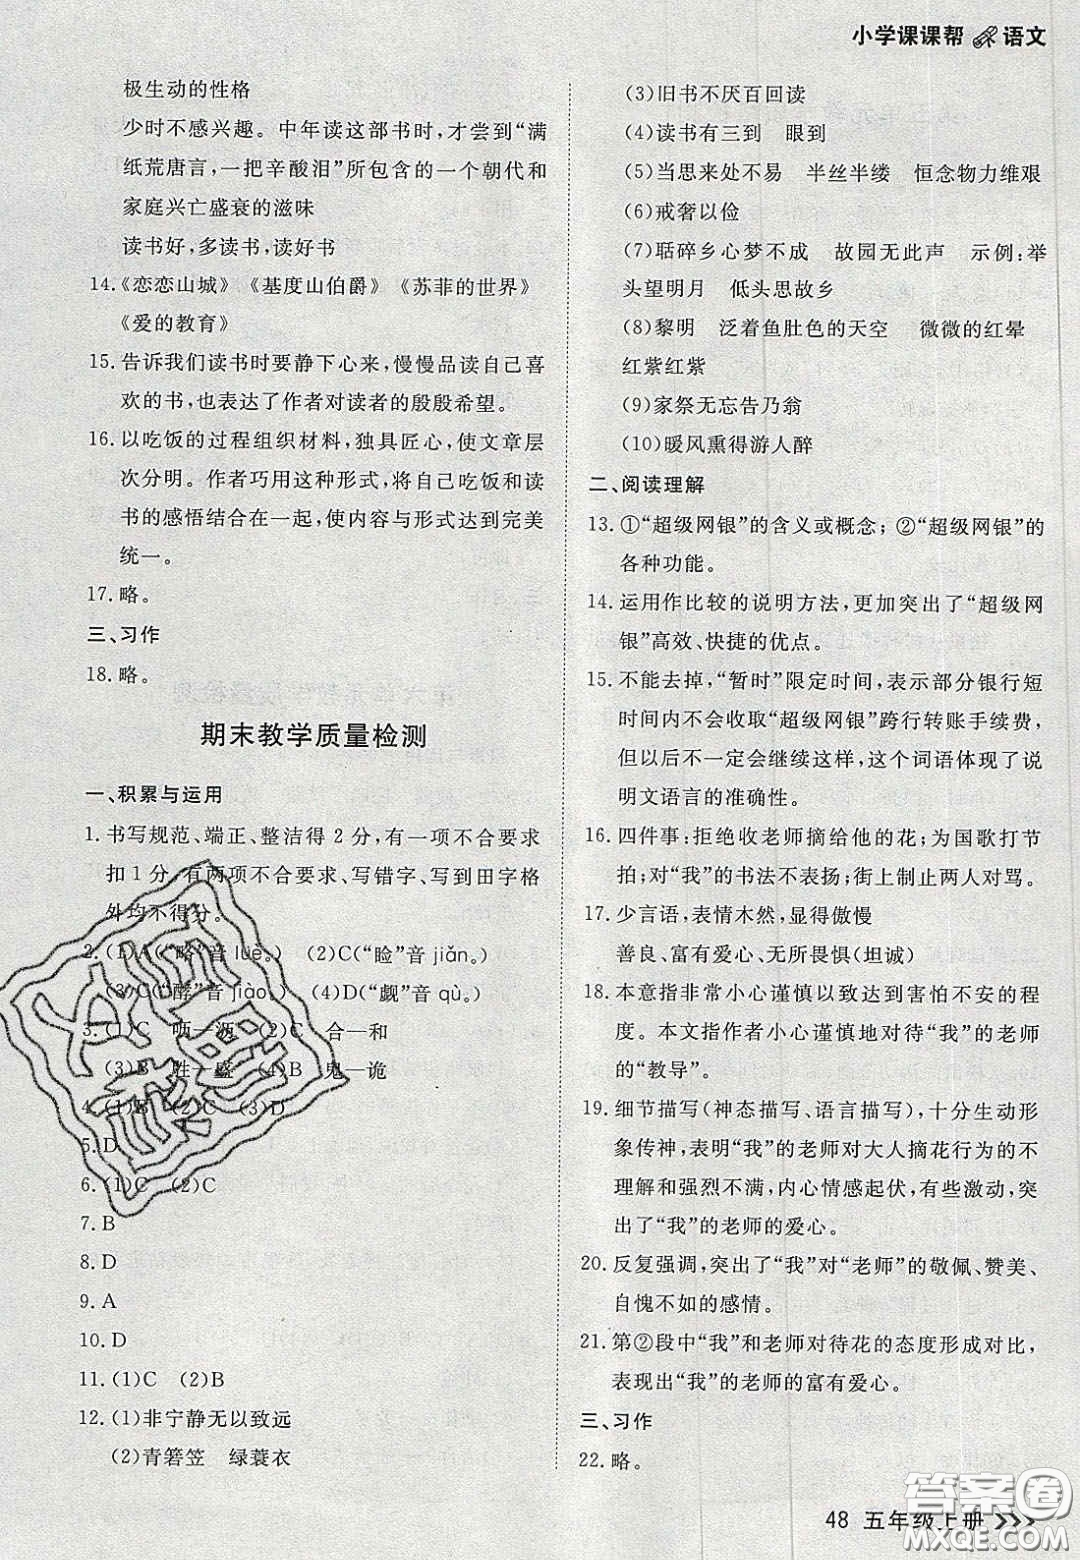 小学课课帮 语文
极生动的性格
少时不感兴趣。中年读这部书时,才尝到“满
纸荒唐言,一把辛酸泪”所包含的一个朝代和
家庭兴亡盛衰的滋味
读书好,多读书,读好书
14.《恋恋山城》《基度山伯爵》《苏菲的世界》
《爱的教育》
15. 告诉我们读书时要静下心来,慢慢品读自己喜
欢的书,也表达了作者对读者的殷殷希望。
16. 以吃饭的过程组织材料,独具匠心,使文章层
次分明。作者巧用这种形式,将自己吃饭和读
书的感悟结合在一起,使内容与形式达到完美
统一。
17. 略。
三、习作
18. 略。
期末教学质量检测
一、积累与运用
1. 书写规范、端正、整洁得 2 分,有一项不合要求
扣 1 分,有两项不合要求、写错字、写到田字格
外均不得分。
2. (1)A(“略”音 lüè。) (2)C(“睑”音 jiǎn。)
(3)C(“酵”音 jiào。) (4)D(“觑”音 qù。)
3. (1)C 呖—沥 (2)C 合—和
(3)B 胜—盛 (4)B 鬼—诡
4. (1)B (2)C (3)D
5. D
6. (1)C (2)C
7. B
8. D
9. A
10. D
11. (1)C (2)B
12. (1)非宁静无以致远
(2)青箬笠 绿蓑衣
(3)旧书不厌百回读
(4)读书有三到 眼到
(5)当思来处不易 半丝半缕 恒念物力维艰
(6)戒奢以俭
(7)聒碎乡心梦不成 故园无此声 示例:举
头望明月 低头思故乡
(8)黎明 泛着鱼肚色的天空 微微的红晕
红紫红紫
(9)家祭无忘告乃翁
(10)暖风熏得游人醉
二、阅读理解
13. ①“超级网银”的含义或概念;②“超级网银”的
各种功能。
14. 运用作比较的说明方法,更加突出了“超级网
银”高效、快捷的优点。
15. 不能去掉,“暂时”限定时间,表示部分银行短
时间内不会收取“超级网银”跨行转账手续费,
但不一定会继续这样,这个词语体现了说
明文语言的准确性。
16. 四件事:拒绝收老师摘给他的花;为国歌打节
拍;对“我”的书法不表扬;街上制止两人对骂。
17. 少言语,表情木然,显得傲慢
善良、富有爱心、无所畏惧(坦诚)
18. 本意指非常小心谨慎以致达到害怕不安的程
度。本文指作者小心谨慎地对待“我”的老师
的“教导”。
19. 细节描写(神态描写、语言描写),十分生动形
象传神,表明“我”的老师对大人摘花行为的不
理解和强烈不满,内心情感起伏,有些激动,突
出了“我”的老师的爱心。
20. 反复强调,突出了“我”对“老师”的敬佩、赞美、
自愧不如的感情。
21. 第②段中“我”和老师对待花的态度形成对比,
表现出“我”的老师的富有爱心。
三、习作
22. 略。
48 五年级上册
答案圈
MXQE.COM